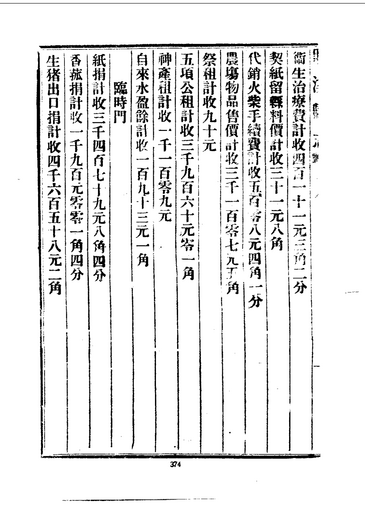 衞生治療費計收四百一十一元三角二分
契紙留縣料價計收三十一元八角
代銷火柴手續費計收五百零八元四角一分
農塲物品售價計收三千一百零七元五角
祭租計收九十元
五項公租計收三千九百六十元零一角
神產租計收一千一百零九元
自來水盈餘計收一百九十三元一角
臨時門
紙捐計收三千四百七十九元八角四分
香菰捐計收一千九百元零零一角四分
生猪出口捐計收四千六百五十八元二角
374